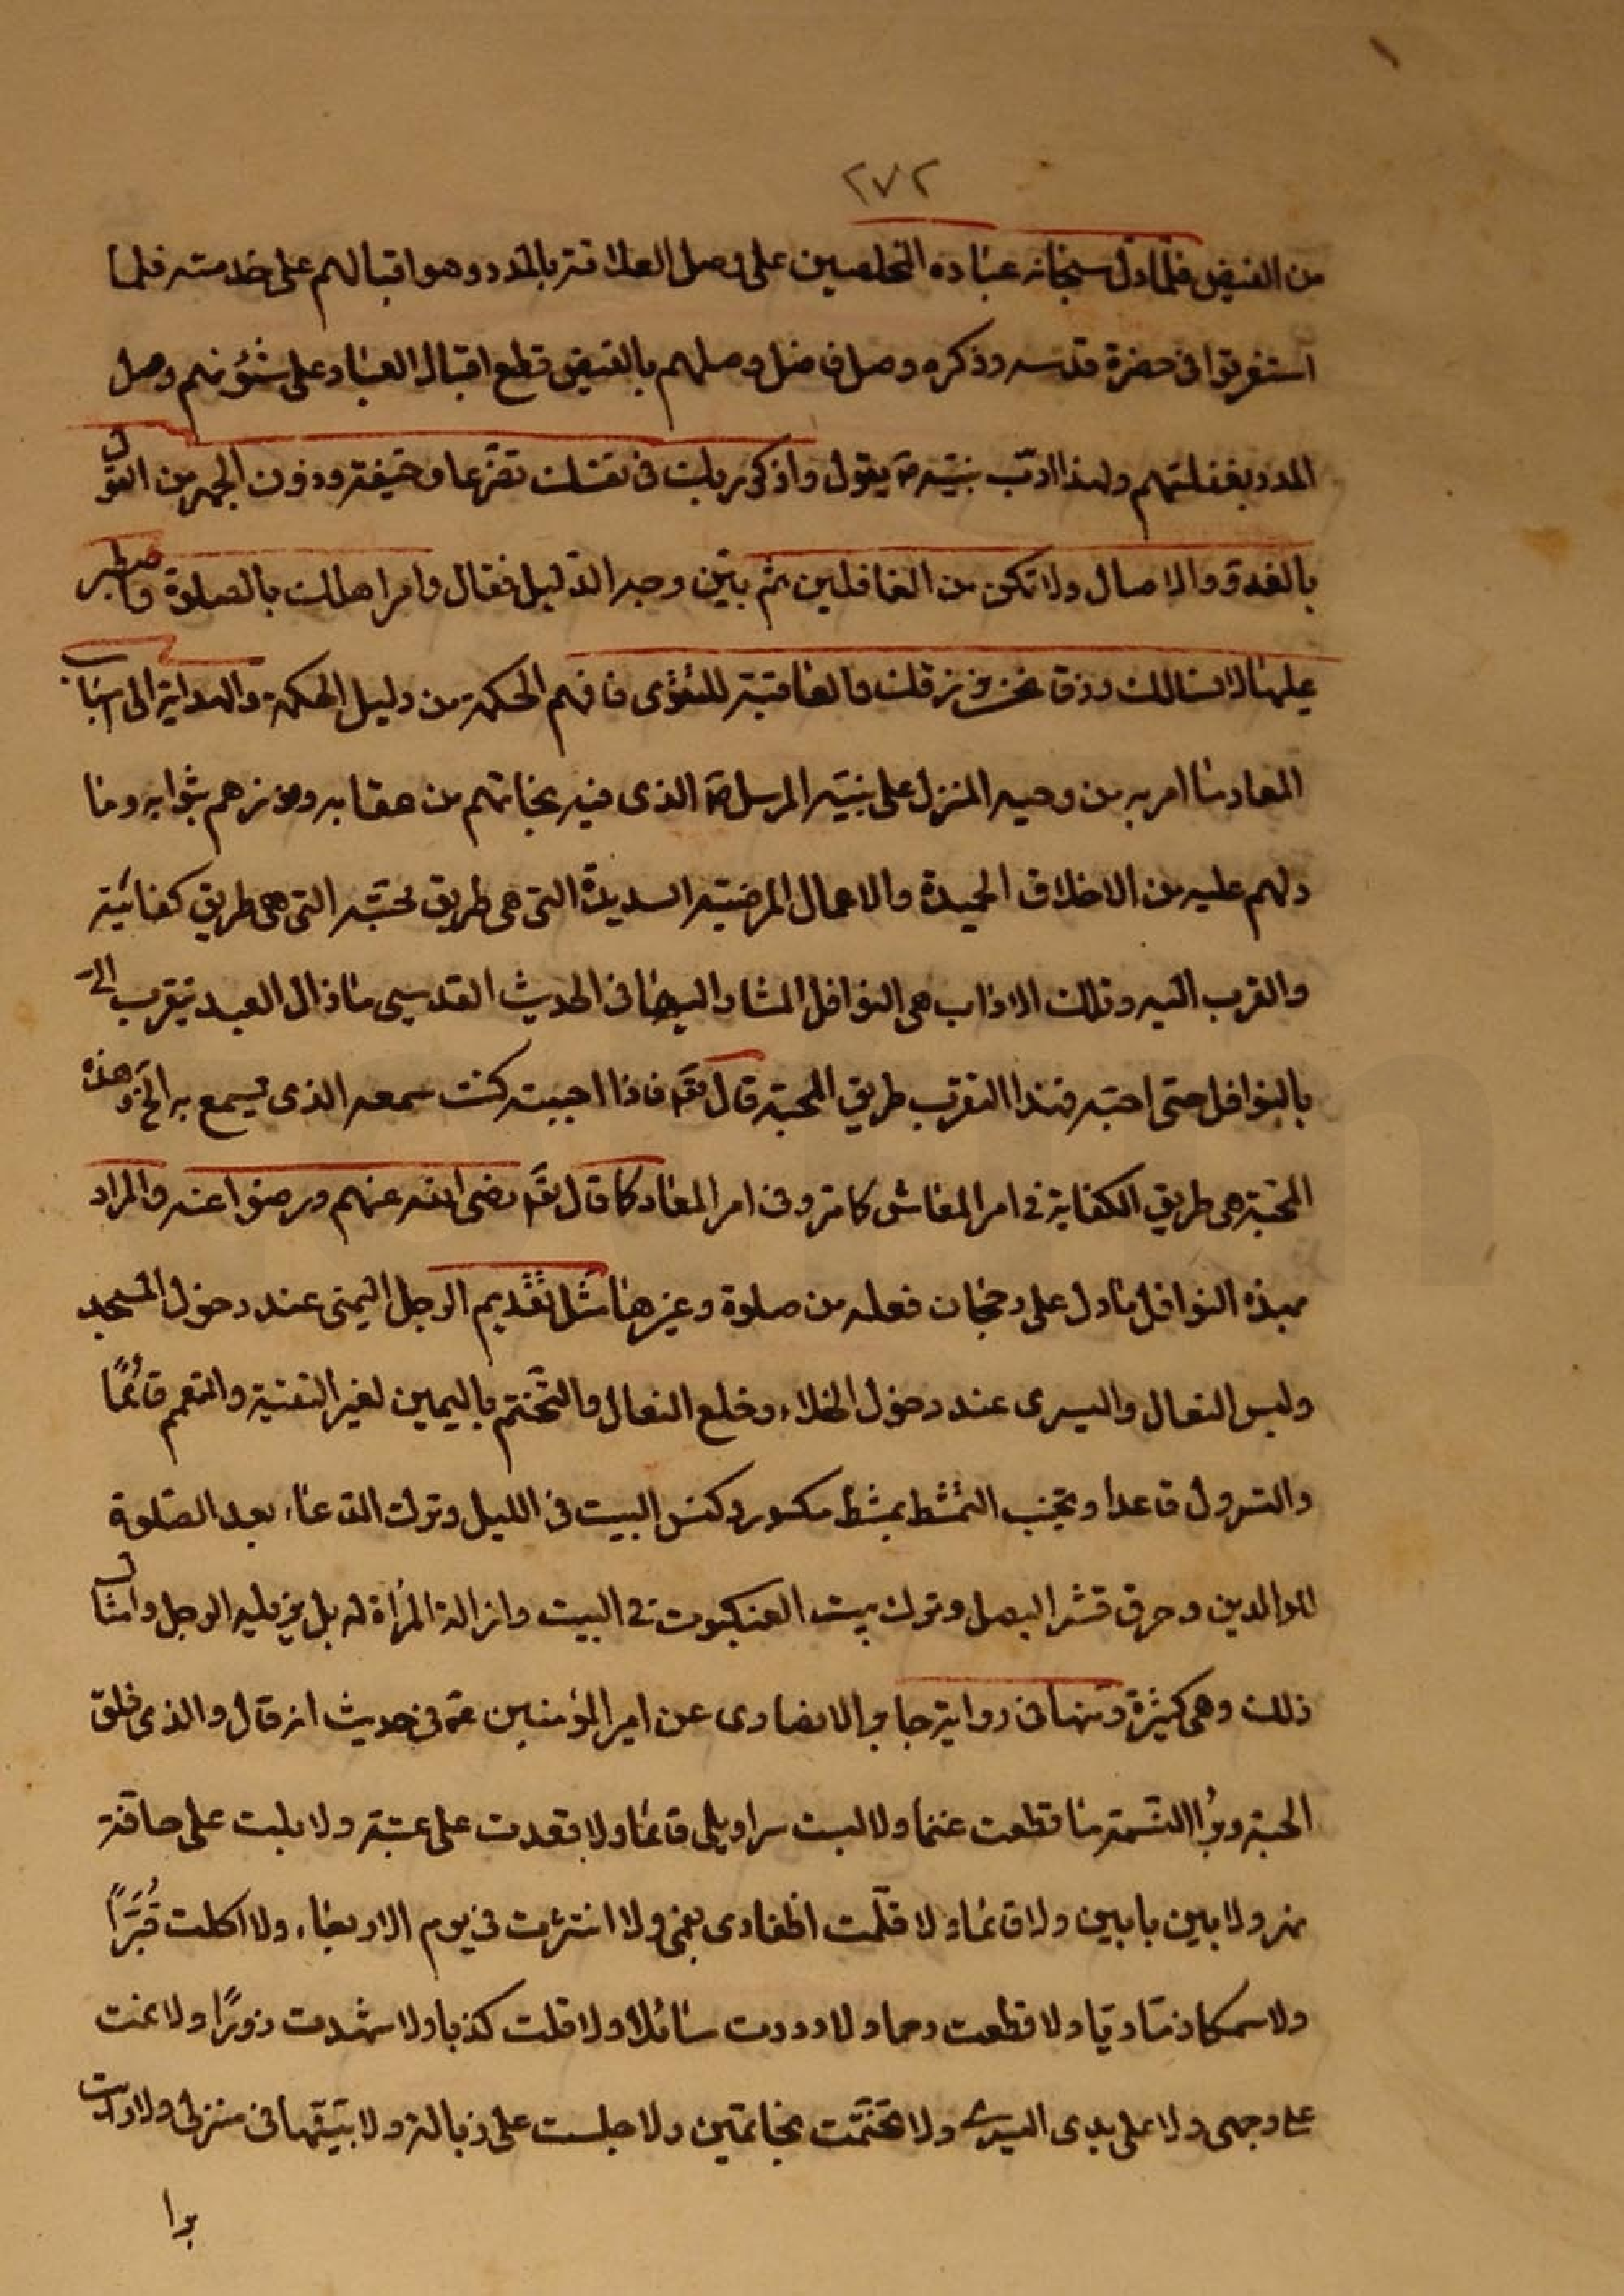 ٢٧٢
من الفيض فلما دل سبحانه عباده المخلصين على وصل العلاقة بالمدد وهو اقبالهم على خدمته فلما
استغرقوا فى حضرة قدسه وذكره وصل فاضل وصلهم بالفيض قطع اقبال العباد على شؤنهم وصل
المدد بغفلتهم ولهذا ادّب نبيّه ص بقول واذكر ربك فى نفسك تضرّعا وخيفة ودون الجهر من القول
بالغدوّ والاصال ولا تكن من الغافلين ثم بيّن وجه الدليل فقال وامر اهلك بالصلوة واصطبر
عليها لا نسالك رزقا نحن نرزقك والعاقبة للتقوى فافهم الحكمة من دليل الحكمة والهداية الى اسباب
المعاد ما امر به من وحيه المنزل على نبيّه المرسل ص الذى فيه نجاتهم من عقابه وفوزهم بثوابه وما
دلهم عليه من الاخلاق الحميدة والاعمال المرضيّة السديدة التى هى طريق محبّته التى هى طريق كفايته
والقرب اليه وتلك الاداب هى النوافل المشار اليها فى الحديث القدسى ما زال العبد يتقرب الىّ
بالنوافل حتى احبّه فهذا التقرب طريق المحبة قال تعَ فاذا احببته كنت سمعه الذى يسمع به الخ وهذه
المحبّة هى طريق الكفاية فى امر المعاش كما مرّ وفى امر المعاد كما قال تعَ رضى الله عنهم ورضوا عنه والمراد
بهذه النوافل ما دل على رجحان فعله من صلوة وغيرها مثل تقديم الرجل اليمنى عند دخول المسجد
ولبس النعال واليسرى عند دخول الخلاء وخلع النعال والتختّم باليمين لغير التقية والتعمم قائمًا
والتسرول قاعدا وتجنب التمشط بمشط مكسور وكنس البيت فى الليل وترك الدعاء بعد الصّلوة
للوالدين وحرق قشر البصل وترك بيت العنكبوت فى البيت وازالة المرأة له بل يزيله الرجل وامثال
ذلك وهى كثيرة ومنها فى رواية جابر الانصارى عن امير المؤمنين ع فى حديث انه قال والذى فلق
الحبّة وبرأ النّسمة ما قطعت غنما ولا لبست سراويلى قائما ولا قعدت على عتبة ولا بلت على حافّة
نهر ولا بين بابين ولا قائما ولا قلّمت اظفارى بفمى ولا انتثرت فى يوم الاربعاء ولا اكلت قُبَّرًا
ولا سمكا ولا قطعت رحما ولا رددت سائلا ولا قلت كذبا ولا شهدت زورًا ولا نمت
على وجهى ولا على يدى اليسرى ولا تختّمت بخاتمين ولا جلست على زبالة ولا بيّتها فى منزلى ولا رايت
برا